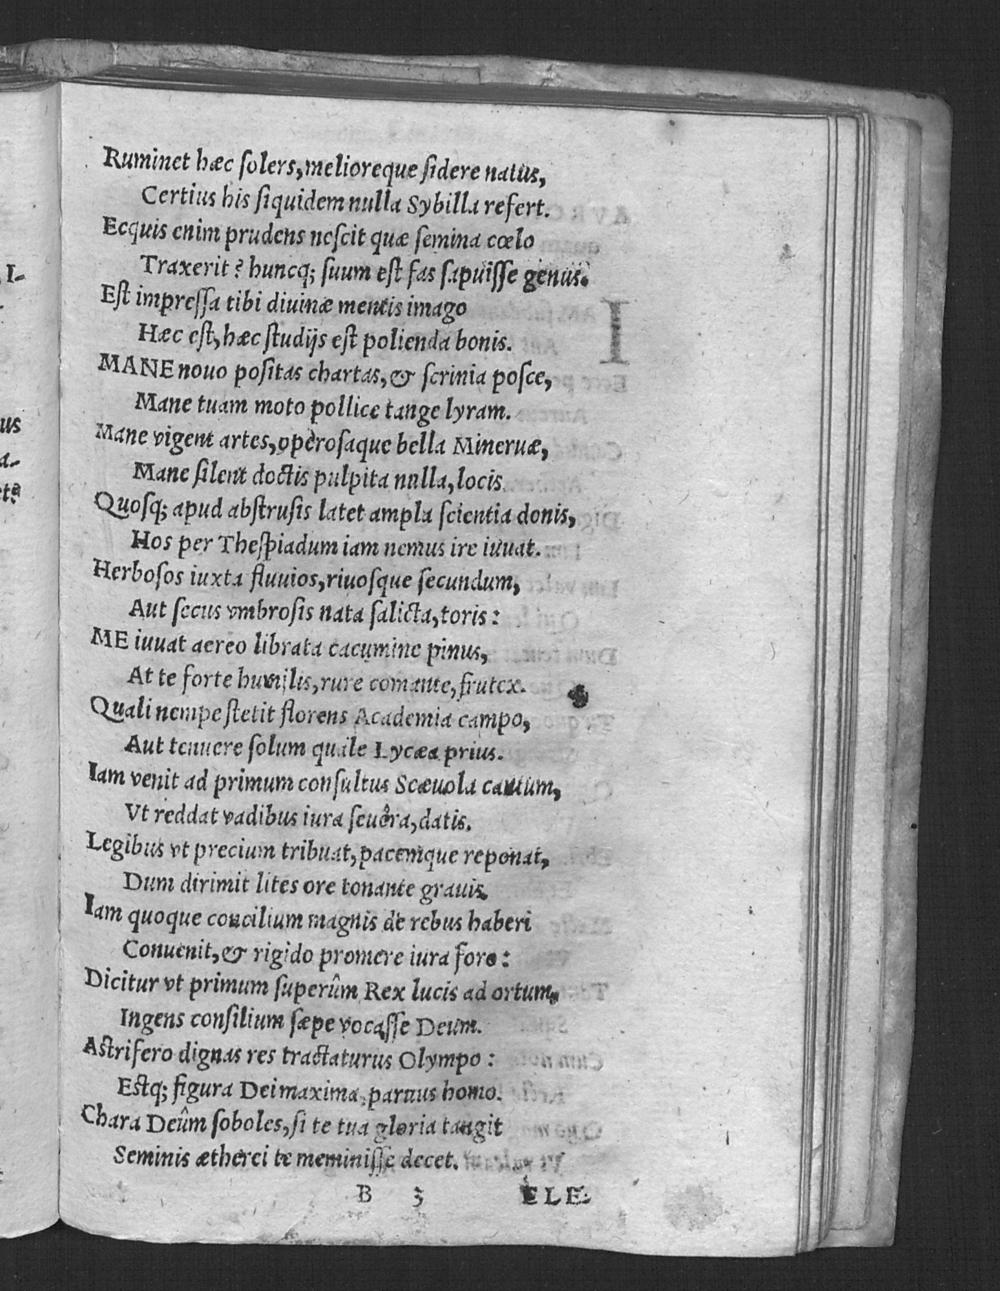 Ruminet hæc ſolers, melioreque ſidere natus,
Certius his ſiquidem nulla Sybilla refert.
Ecquis enim prudens neſcit quæ ſemina cœlo
Traxerit? huncq; ſuum eſt fas ſapuiſſe genus.
Eſt impreſſa tibi diuinæ mentis imago
Hæc eſt, hæc ſtudijs eſt polienda bonis.
MANE nouo poſitas chartas, & ſcrinia poſce,
Mane tuam moto pollice tange lyram.
Mane vigent artes, operoſaque bella Mineruæ,
Mane ſilent doctis pulpita nulla, locis.
Quoſq; apud abſtruſis latet ampla ſcientia donis,
Hos per Theſpiadum iam nemus ire iuuat.
Herboſos iuxta fluuios, riuoſque ſecundum,
Aut ſecus vmbroſis nata ſalicta, toris:
ME iuuat aereo librata cacumine pinus,
At te forte humilis, rure comante, frutex.
Quali nempe ſtetit florens Academia campo,
Aut tenuere ſolum quale Lycæa prius.
Iam venit ad primum conſultus Scæuola cantum,
Vt reddat vadibus iura ſeuêra, datis.
Legibus vt precium tribuat, pacemque reponat,
Dum dirimit lites ore tonante grauis.
Iam quoque concilium magnis de rebus haberi
Conuenit, & rigido promere iura foro:
Dicitur vt primum ſuperûm Rex lucis ad ortum,
Ingens conſilium ſæpe vocaſſe Deûm.
Aſtrifero dignas res tractaturus Olympo:
Eſtq; figura Dei maxima, paruus homo.
Chara Deûm ſoboles, ſi te tua gloria tangit
Seminis ætherei te meminiſſe decet.
B 3 ELE-